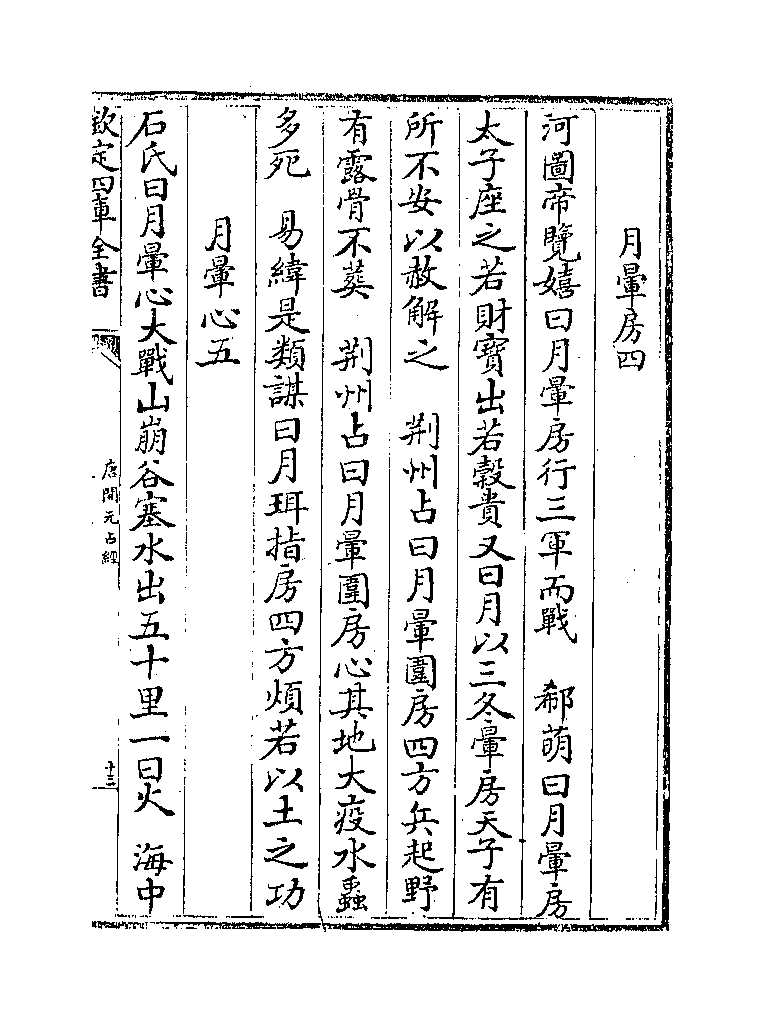 月暈房四
河圖帝覽嬉曰月暈房行三軍而戰　郗萌曰月暈房
太子座之若財寶出若穀貴又曰月以三冬暈房天子有
所不安以赦解之　荆州占曰月暈圍房四方兵起野
有露骨不葬　荆州占曰月暈圍房心其地大疫水蟲
多死　易緯是類謀曰月珥指房四方煩若以土之功
月暈心五
石氏曰月暈心大戰山崩谷塞水出五十里一曰火　海中
欽定四庫全書
唐開元占經
十三